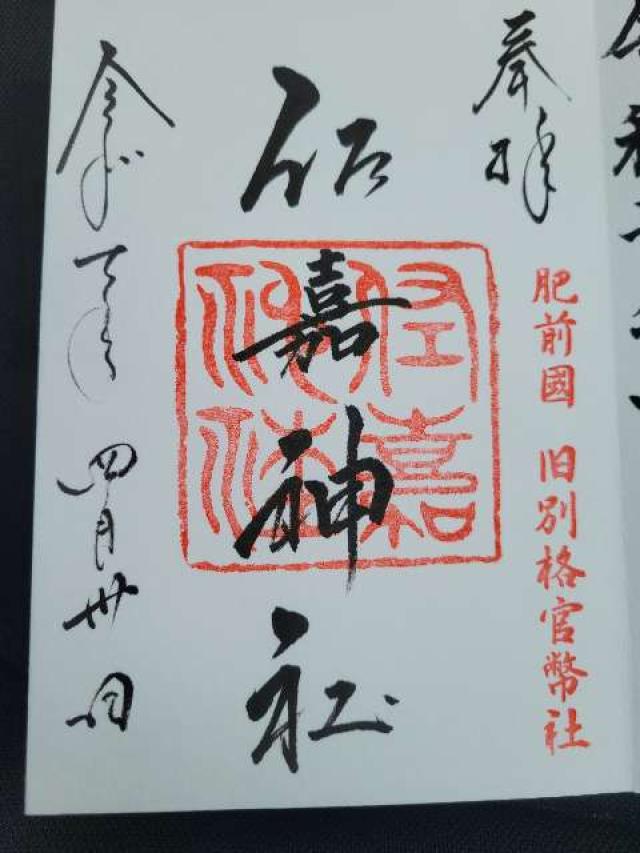 奉拝
肥前國 旧別格官幣社
佐嘉神社
佐嘉
神社
令和 年 四月卅日